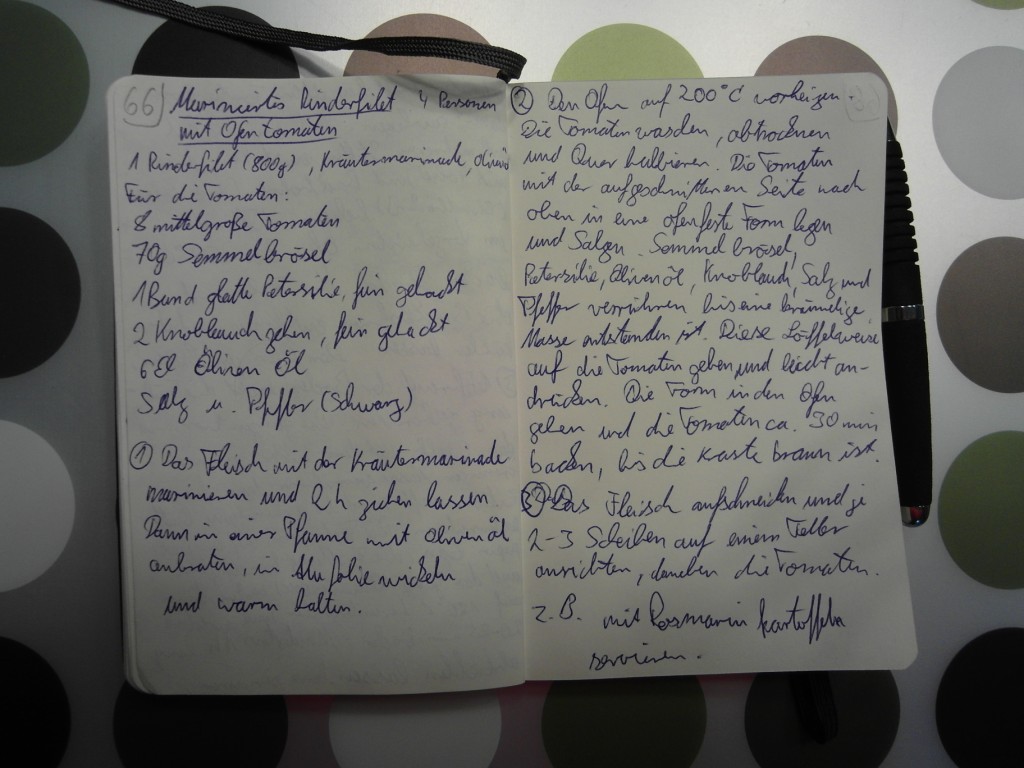 66 Mariniertes Rinderfilet 4 Personen
mit Ofentomaten
1 Rinderfilet (800g), Kräutermarinade, Olivenöl
Für die Tomaten:
8 mittelgroße Tomaten
70g Semmelbrösel
1 Bund glatte Petersilie, fein gehackt
2 Knoblauchzehen, fein gehackt
6 El Oliven Öl
Salz u. Pfeffer (Schwarz)
① Das Fleisch mit der Kräutermarinade
marinieren und 2h ziehen lassen
Dann in einer Pfanne mit Olivenöl
anbraten, in Alufolie wickeln
und warm halten.
② Den Ofen auf 200°C vorheizen.
Die Tomaten waschen, abtrocknen
und Quer halbieren. Die Tomaten
mit der aufgeschnittenen Seite nach
oben in eine ofenfeste Form legen
und Salzen. Semmelbrösel,
Petersilie, Olivenöl, Knoblauch, Salz und
Pfeffer verrühren bis eine krümelige
Masse entstanden ist. Diese Löffelweise
auf die Tomaten geben und leicht an-
drücken. Die Form in den Ofen
geben und die Tomaten ca. 30 min
backen, bis die Kruste braun ist.
③ Das Fleisch aufschneiden und je
2-3 Scheiben auf einem Teller
anrichten, daneben die Tomaten.
z.B. mit Rosmarinkartoffeln
servieren.